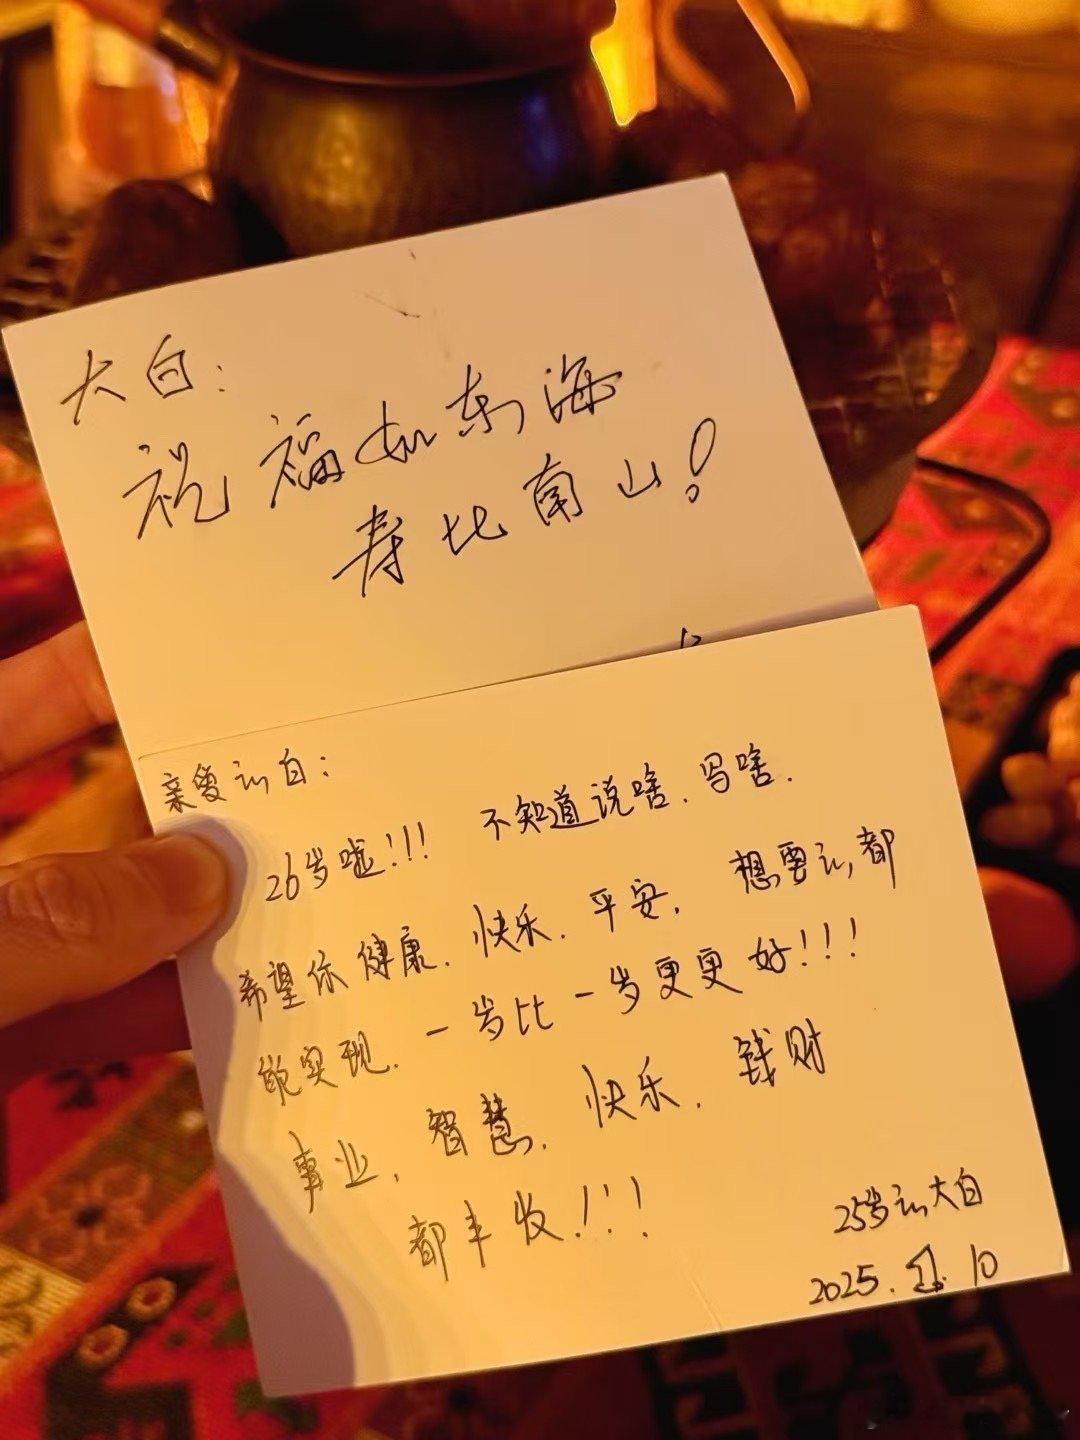 大白：
祝福如东海
寿比南山！
亲爱的白：
26岁啦！！！ 不知道说啥、写啥．
希望你健康、快乐、平安， 想要的都
能实现．一岁比一岁更更好！！！
事业、智慧、快乐、钱财
都丰收！！！
25岁的大白
2025. 10